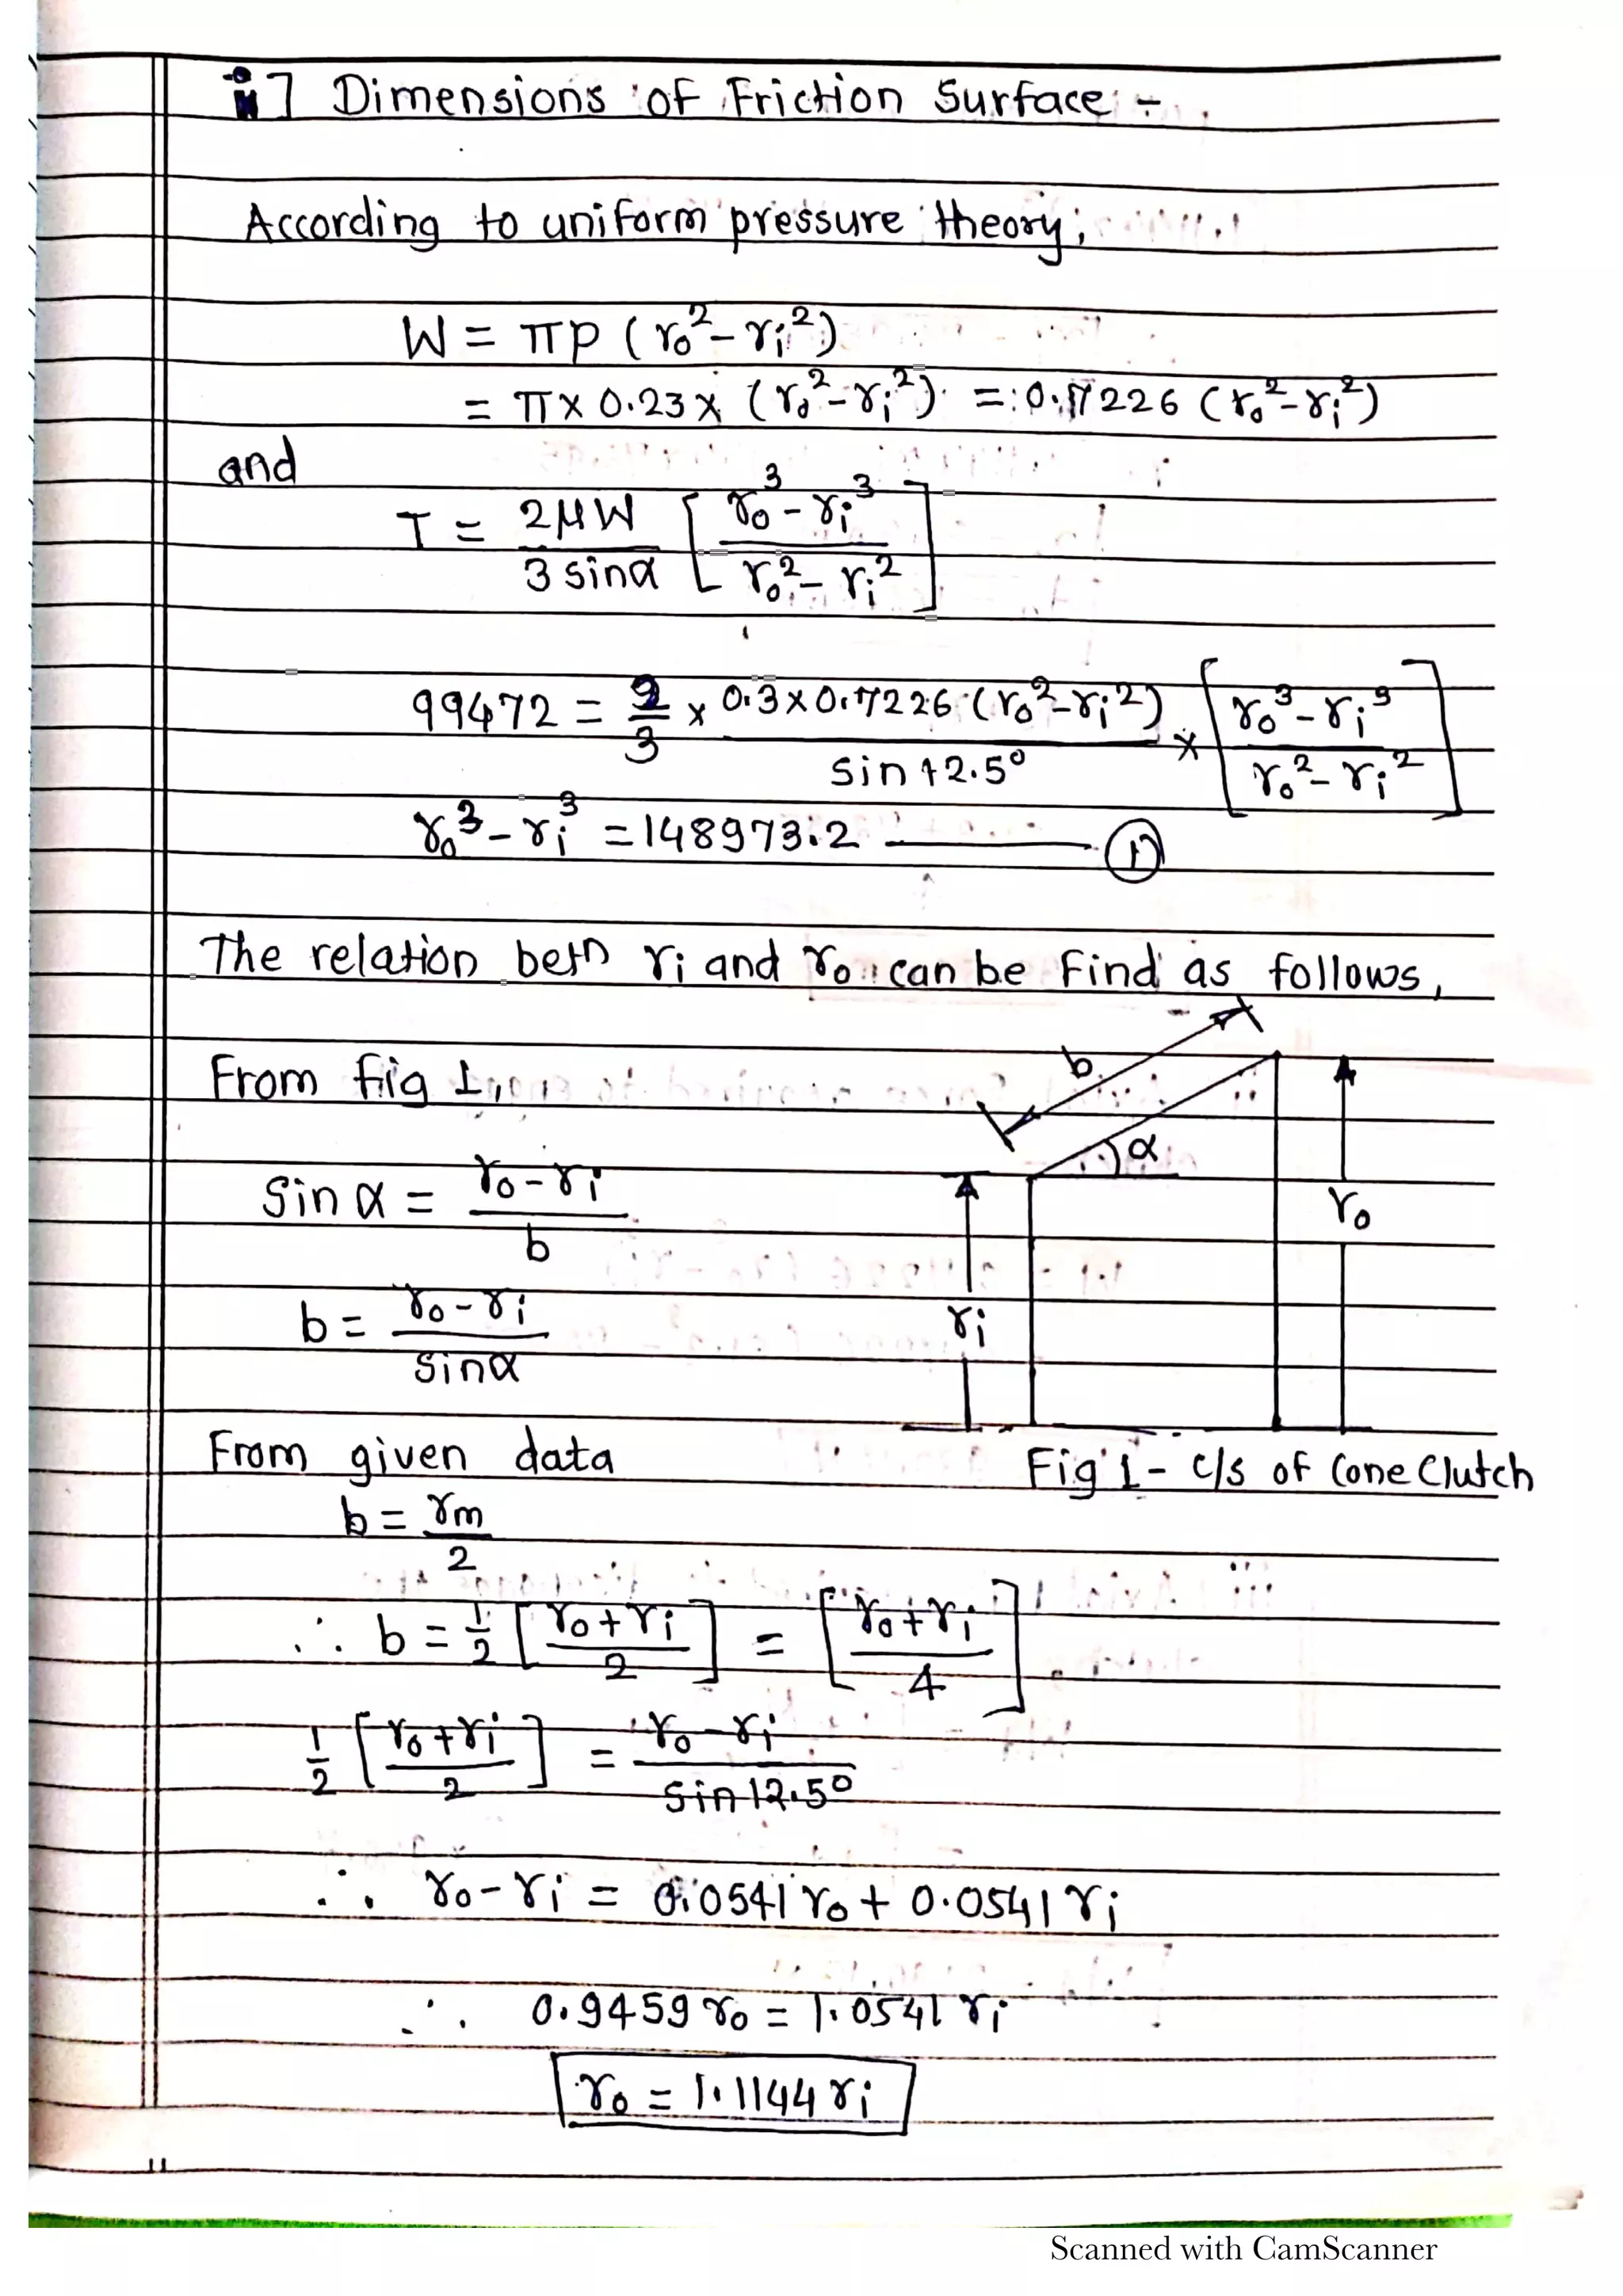 i] Dimensions of Friction Surface :-
According to uniform pressure theory;
W = πp (ro² - ri²)
= π x 0.23 x (ro² - ri²) = 0.7226 (ro² - ri²)
and
T = 2μW / 3 sinα [ro³ - ri³ / ro² - ri²]
99472 = 2/3 x 0.3 x 0.7226 (ro² - ri²) / sin 12.5° x [ro³ - ri³ / ro² - ri²]
ro³ - ri³ = 148973.2 ——— ①
The relation betn ri and ro can be Find as follows,
From fig 1,
b
α
Sin α = ro - ri / b
ro
b = ro - ri / sinα
ri
From given data
Fig 1 - c/s of Cone Clutch
b = rm / 2
∴ b = 1/2 [ro + ri / 2] = [ro + ri / 4]
1/2 [ro + ri / 2] = ro - ri / sin 12.5°
∴ ro - ri = 0.0541 ro + 0.0541 ri
∴ 0.9459 ro = 1.0541 ri
ro = 1.1144 ri
Scanned with CamScanner